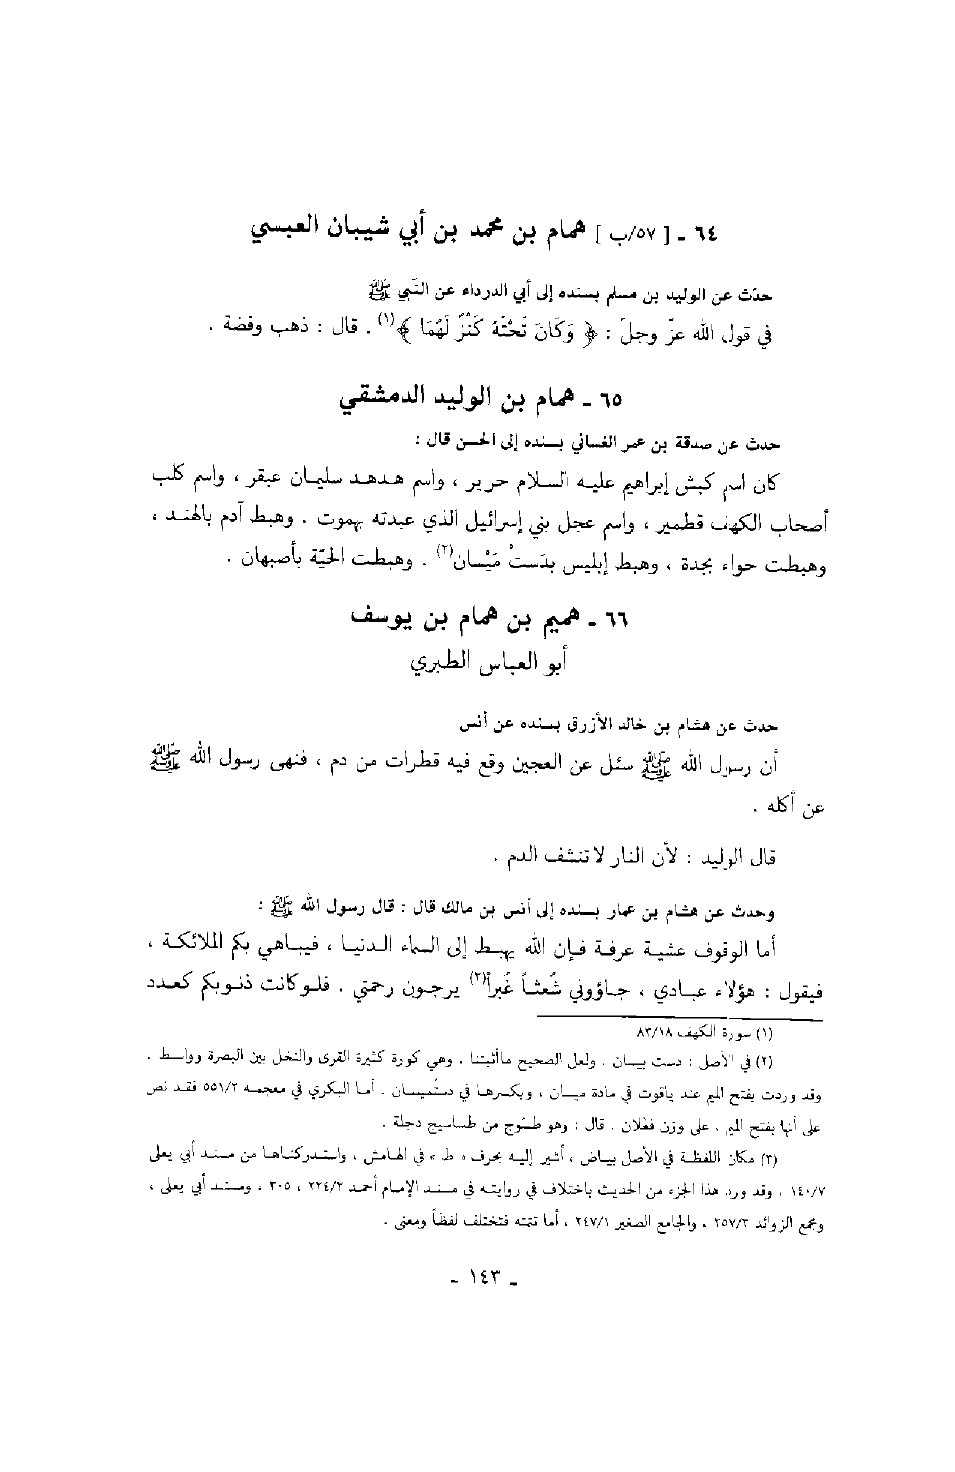 ٦٤ ـ [ ٥٧/ب ] همام بن محمد بن أبي شيبان العبسي
حدّث عن الوليد بن مسلم بسنده إلى أبي الدرداء عن النَّبي ﷺ
في قول الله عزّ وجلّ : ﴿ وَكَانَ تَحْتَهُ كَنْزٌ لَهُمَا ﴾(١) . قال : ذهب وفضة .
٦٥ ـ همام بن الوليد الدمشقي
حدث عن صدقة بن عمر الغساني بسنده إلى الحسن قال :
كان اسم كبش إبراهيم عليه السلام حرير ، واسم هدهد سليمان عبقر ، واسم كلب
أصحاب الكهف قطمير ، واسم عجل بني إسرائيل الذي عبدته بهموت . وهبط آدم بالهند ،
وهبطت حواء بجدة ، وهبط إبليس بدَستْ مَيْسان(٢) . وهبطت الحيّة بأصبهان .
٦٦ ـ هميم بن همام بن يوسف
أبو العباس الطبري
حدث عن هشام بن خالد الأزرق بسنده عن أنس
أن رسول الله ﷺ سئل عن العجين وقع فيه قطرات من دم ، فنهى رسول الله ﷺ
عن أكله .
قال الوليد : لأن النار لا تنشف الدم .
وحدث عن هشام بن عمار بسنده إلى أنس بن مالك قال : قال رسول الله ﷺ :
أما الوقوف عشية عرفة فإن الله يهبط إلى السماء الدنيا ، فيباهي بكم الملائكة ،
فيقول : هؤلاء عبادي ، جاؤوني شُعثاً غُبراً(٣) يرجون رحمتي . فلو كانت ذنوبكم كعدد
(١) سورة الكهف ٨٣/١٨
(٢) في الأصل : دست بيسان . ولعل الصحيح ماأثبتنا . وهي كورة كثيرة القرى والنخل بين البصرة وواسط .
وقد وردت بفتح الميم عند ياقوت في مادة ميسان ، وبكسرها في دستميسان . أما البكري في معجمه ٥٥١/٢ فقد نص
على أنها بفتح الميم . على وزن فعلان . قال : وهو طسّوج من طساسيج دجلة .
(٣) مكان اللفظة في الأصل بياض ، أشير إليه بحرف « ط » في الهامش ، واستدركناها من مسند أبي يعلى
١٤٠/٧ . وقد ورد هذا الجزء من الحديث باختلاف في روايته في مسند الإمام أحمد ٢٢٤/٢ ، ٣٠٥ . ومسند أبي يعلى ،
ومجمع الزوائد ٢٥٧/٣ . والجامع الصغير ٢٤٧/١ ، أما تتمته فتختلف لفظاً ومعنى .
ـ ١٤٣ ـ